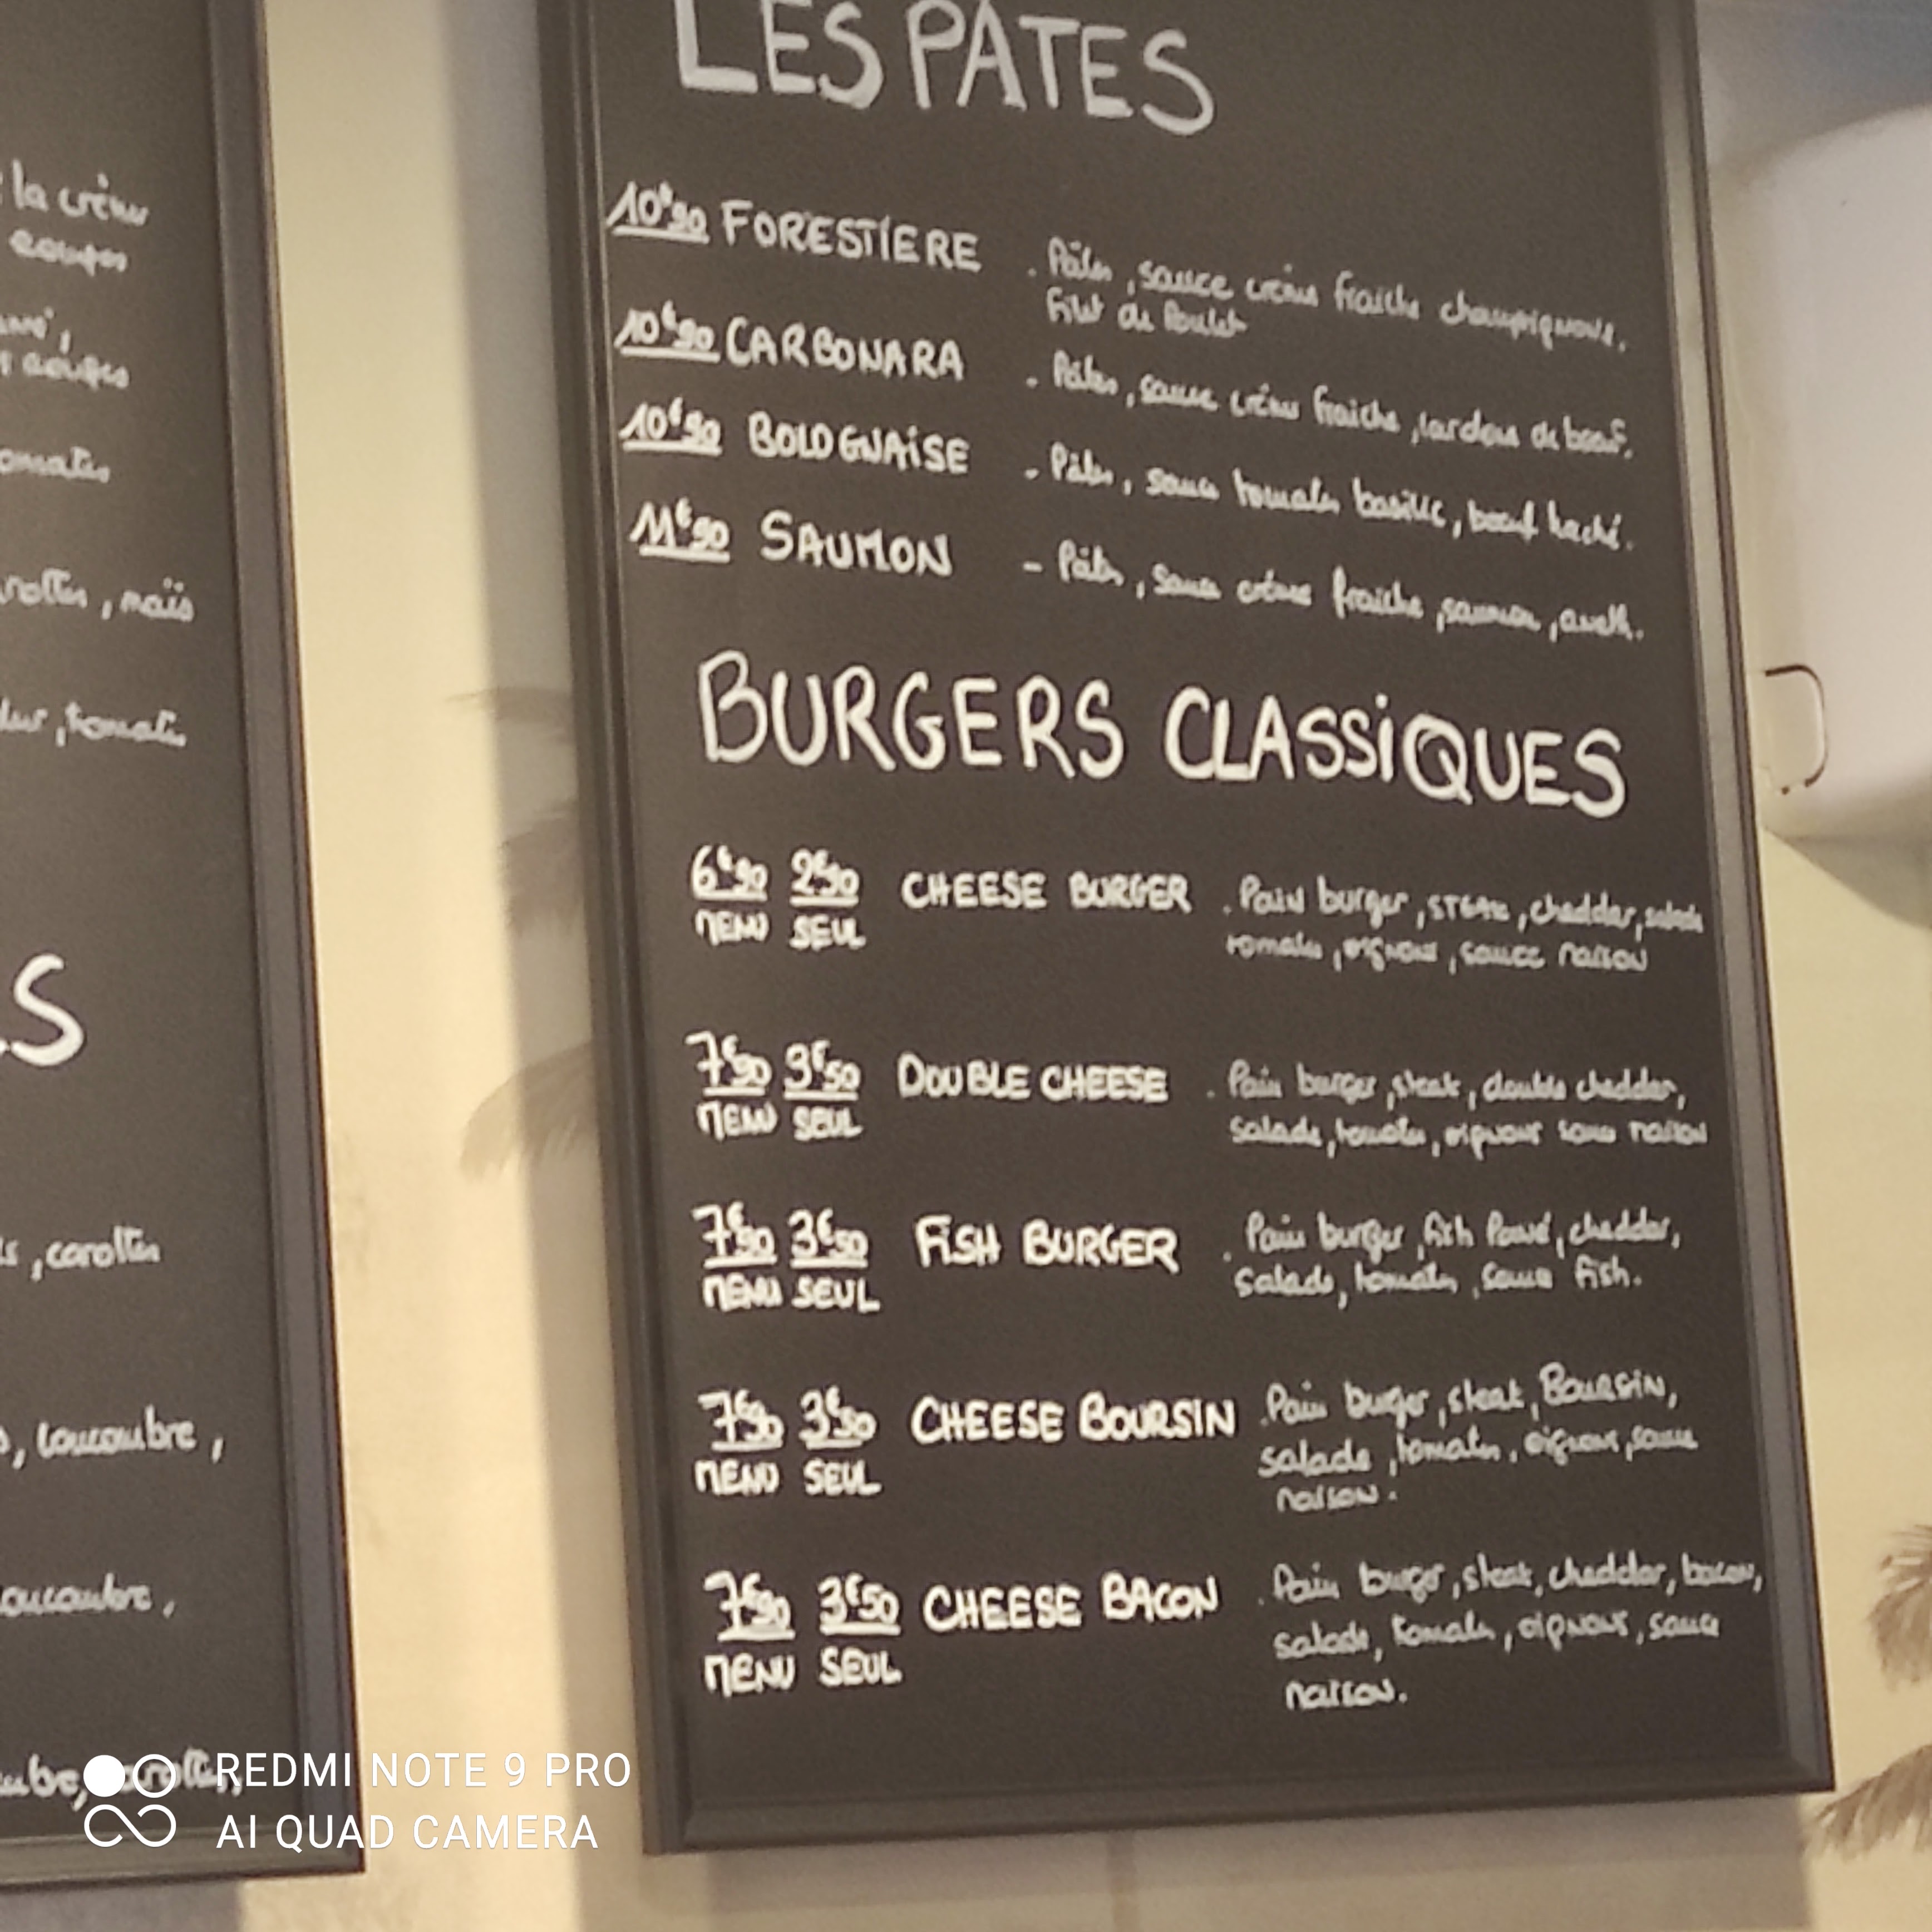 la crème
coupes
coupes
tomates
carottes, maïs
dur, tomates
S
, carottes
, concombre,
concombre,
carottes,
LES PATES
10€90 FORESTIERE . Pâtes, sauce crème fraiche champignons,
Filet de Poulet
10€90 CARBONARA - Pâtes, sauce crème fraiche, lardons de boeuf.
10€90 BOLOGNAiSE - Pâtes, sauce tomates basilic, boeuf haché.
11€90 SAUMON - Pâtes, sauce crème fraiche, saumon, aneth.
BURGERS CLASSiQUES
6€90 2€90 CHEESE BURGER . Pain burger, STEAK, cheddar, salade
MENU SEUL tomates, oignons, sauce maison
7€50 3€50 DOUBLE CHEESE . Pain burger, steak, double cheddar,
MENU SEUL salade, tomates, oignons sauce maison
7€50 3€50 FiSH BURGER . Pain burger, fish Pané, cheddar,
MENU SEUL salade, tomates, sauce fish.
7€90 3€50 CHEESE BOURSIN . Pain burger, steak, BOURSIN,
MENU SEUL salade, tomates, oignons, sauce
maison.
7€90 3€50 CHEESE BACON . Pain burger, steak, cheddar, bacon,
MENU SEUL salade, tomates, oignons, sauce
maison.
REDMI NOTE 9 PRO
AI QUAD CAMERA